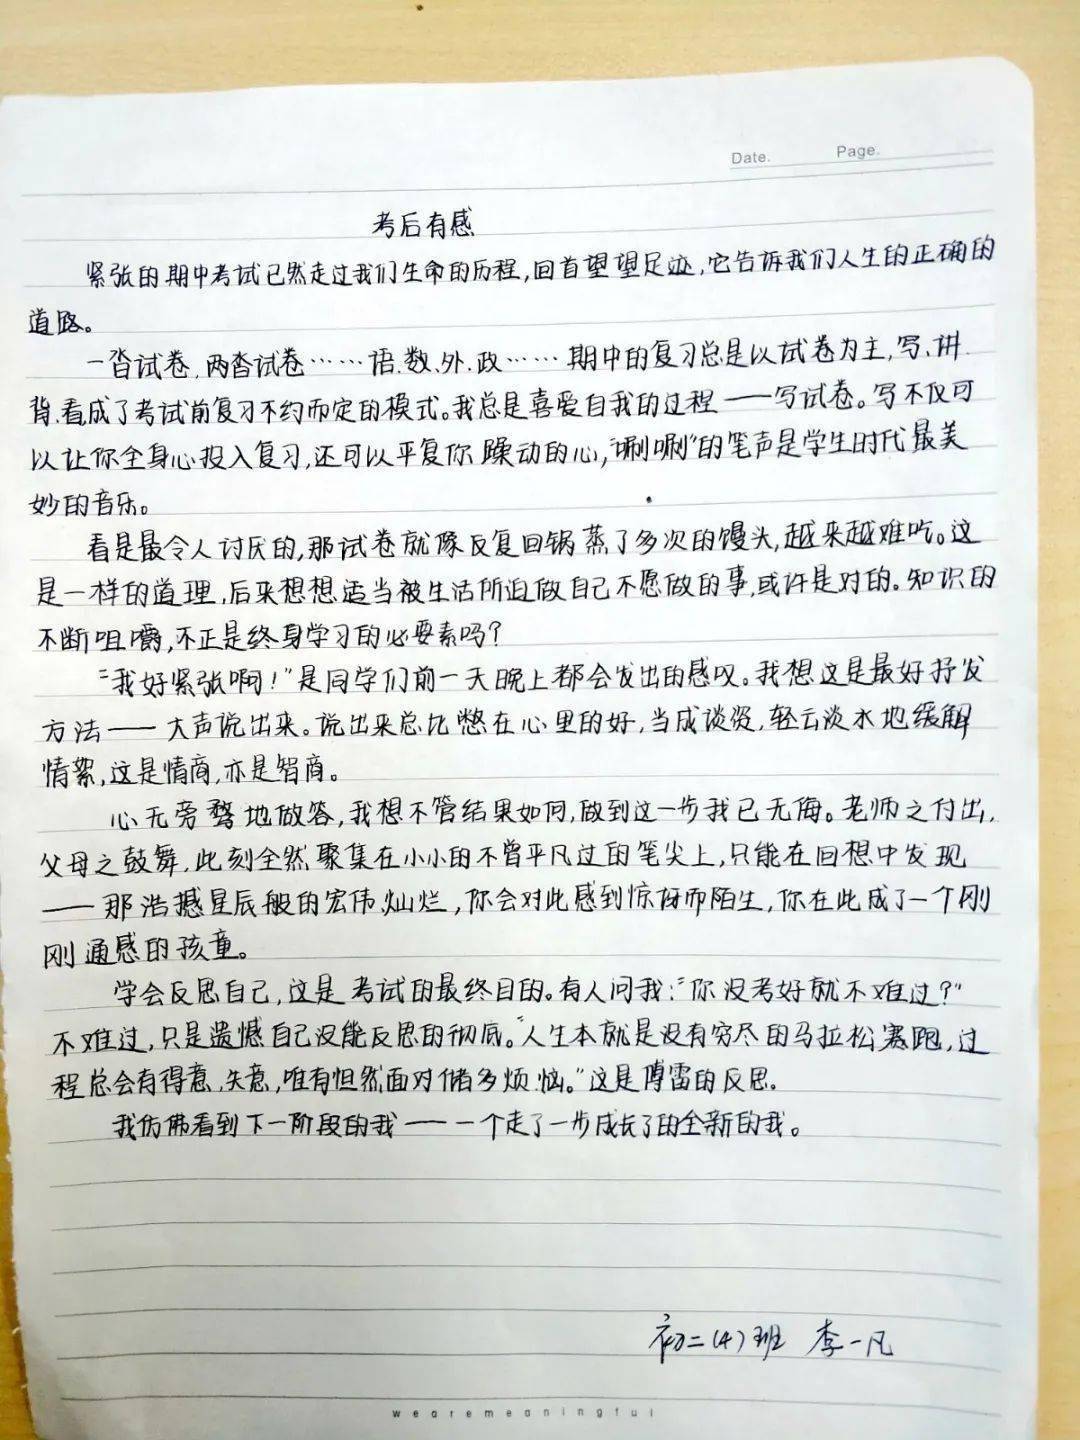 Date. Page.
考后有感
紧张的期中考试已然走过我们生命的历程,回首望望足迹,它告诉我们人生的正确的
道路。
一沓试卷,两沓试卷……语、数、外、政……期中的复习总是以试卷为主,写、讲、
背、看成了考试前复习不约而定的模式。我总是喜爱自我的过程——写试卷。写不仅可
以让你全身心投入复习,还可以平复你躁动的心,“唰唰”的笔声是学生时代最美
妙的音乐。
看是最令人讨厌的,那试卷就像反复回锅蒸了多次的馒头,越来越难吃。这
是一样的道理,后来想想适当被生活所迫做自己不愿做的事,或许是对的。知识的
不断咀嚼,不正是终身学习的必要素吗?
“我好紧张啊!”是同学们前一天晚上都会发出的感叹。我想这是最好抒发
方法——大声说出来。说出来总比憋在心里的好,当成谈资,轻云淡水地缓解
情絮,这是情商,亦是智商。
心无旁骛地做答,我想不管结果如何,做到这一步我已无悔。老师之付出,
父母之鼓舞,此刻全然聚集在小小的不曾平凡过的笔尖上,只能在回想中发现
——那浩撼星辰般的宏伟灿烂,你会对此感到惊讶而陌生,你在此成了一个刚
刚通感的孩童。
学会反思自己,这是考试的最终目的。有人问我:“你没考好就不难过?”
不难过,只是遗憾自己没能反思的彻底。“人生本就是没有穷尽的马拉松赛跑,过
程总会有得意、失意,唯有怛然面对储多烦恼。”这是傅雷的反思.
我仿佛看到下一阶段的我——一个走了一步成长了的全新的我。
初二(4)班 李一凡
wearemeaningful